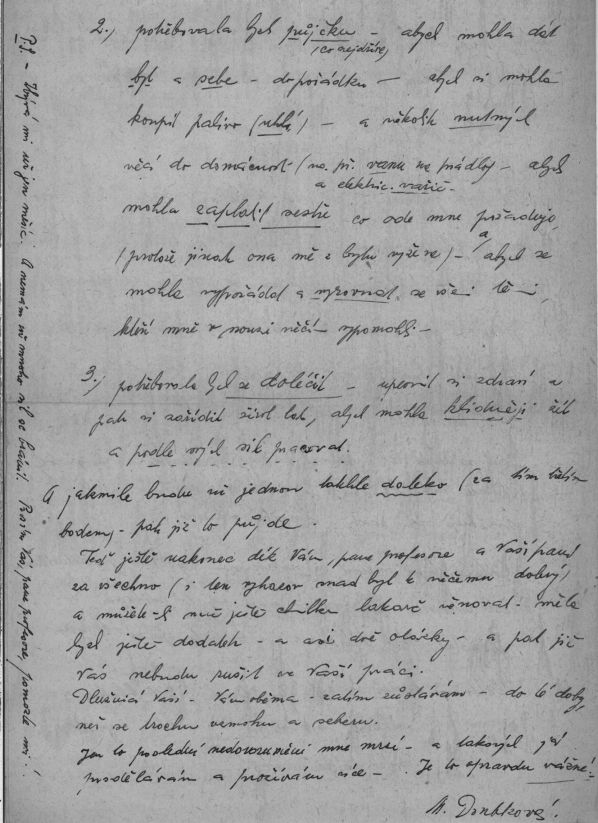 2.) potřebovala bych půjčku - abych mohla dát
(co nejdříve)
byt a sebe - dopořádku - abych si mohla
koupit palivo (uhlí) - a několik nutných
věcí do domácnosti (na. př. vanu na prádlo) - abych
a elektric. vařič -
mohla zaplatit sestře co ode mne požaduje,
(protože jinak ona mě z bytu vyžene) - a abych se
mohla vypořádat a vyrovnat se všemi těmi,
kteří mně v nouzi něčím vypomohli -
3.) potřebovala bych se doléčit - upevnit si zdraví a
pak si zařídit život tak, abych mohla klidněji žít
a podle svých sil pracovat.
A jakmile budu už jednou takhle daleko (za tím třetím
bodem) - pak již to půjde.
Teď ještě nakonec dík Vám, pane profesore a Vaší paní
za všechno (i ten snad byl k něčemu dobrý)
a můžete-li mně ještě chilku laskavě věnovat - měla
bych ještě dodatek - a asi dvě otázky - a pak již
Vás nebudu rušit ve Vaší práci.
Dlužnicí Vaší - Vám oběma - zatím zůstávám - do té doby,
než se trochu vzmohu a seberu.
Jen to poslední nedorozumění mne mrzí - a takových já
prodělávám a prožívám více - . Je to opravdu vážné!
M. Doubková.
P.S. - Zbývá mi už jen měsíc. A nemám už mnoho sil se bránit. Prosím Vás, pane profesore, pomozte mi!